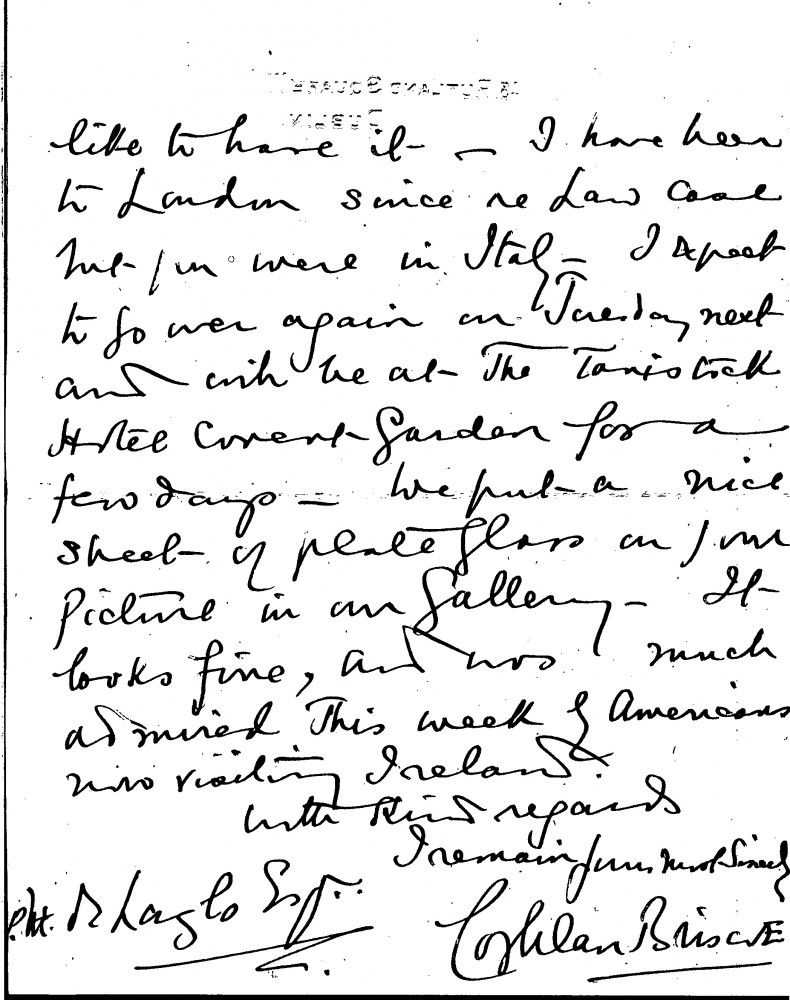 18 RUTLAND SQUARE W.
DUBLIN.
like to have it — I have been
to London since re Law Case
but you were in Italy — I expect
to go over again on Tuesday next
and will be at The Tavistock
Hotel Covent Garden for a
few days — We put a nice
sheet of plate glass on your
Picture in our Gallery — It
looks fine, and was much
admired This week by Americans
now visiting Ireland.
With Kind regards
I remain yours most Sincely
P. de Laszlo Esq.
Coghlan Briscoe